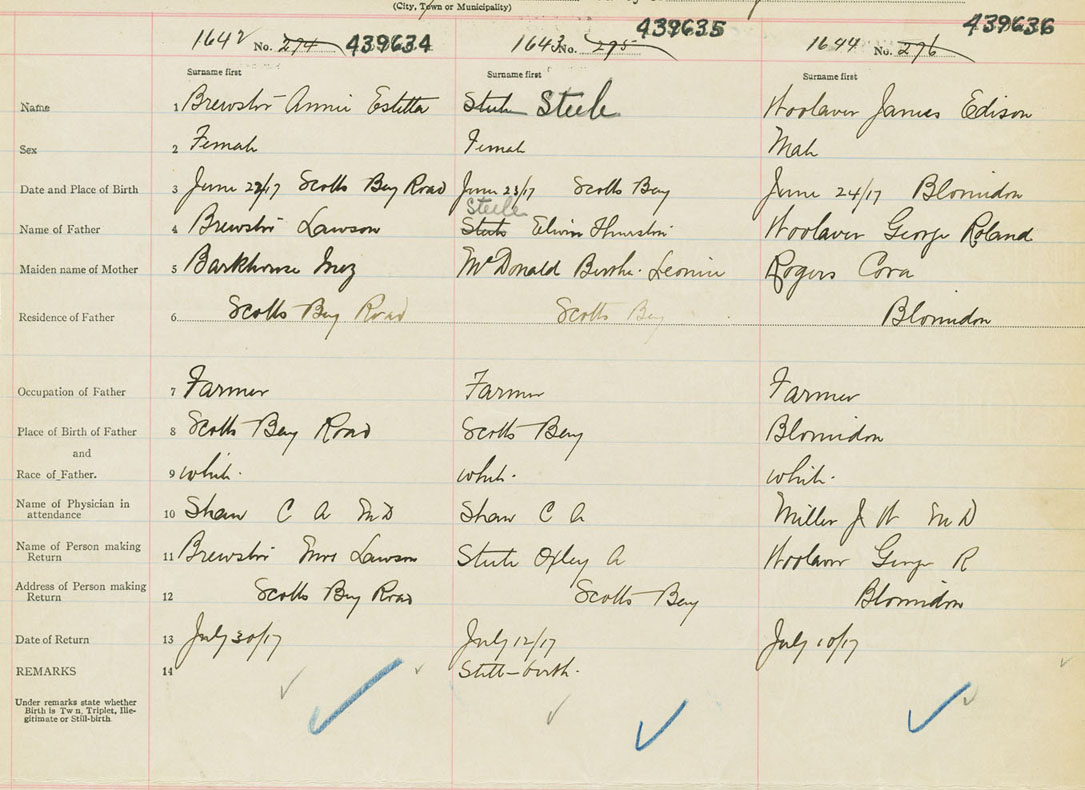 (City, Town or Municipality)
1642 No. 274 439634 1643 No. 275 439635 1644 No. 276 439636
Surname first Surname first Surname first
Name 1 Brewster Annie Estella Steele Steele Woolaver James Edison
Sex 2 Female Female Male
Date and Place of Birth 3 June 22/17 Scotts Bay Road June 23/17 Scotts Bay June 24/17 Blomidon
Steele
Name of Father 4 Brewster Lawson Steele Elwin Thurston Woolaver George Roland
Maiden name of Mother 5 Barkhouse Inez McDonald Bertha Leonia Rogers Cora
Residence of Father 6 Scotts Bay Road Scotts Bay Blomidon
Occupation of Father 7 Farmer Farmer Farmer
Place of Birth of Father 8 Scotts Bay Road Scotts Bay Blomidon
and
Race of Father. 9 white. white. white.
Name of Physician in
attendance 10 Shaw C A MD Shaw C A Miller J W MD
Name of Person making
Return 11 Brewster Mrs Lawson Steele Oxley A Woolaver George R
Address of Person making
Return 12 Scotts Bay Road Scotts Bay Blomidon
Date of Return 13 July 30/17 July 12/17 July 10/17
REMARKS 14 Still-birth.
Under remarks state whether
Birth is Twin, Triplet, Ille-
gitimate or Still-birth.